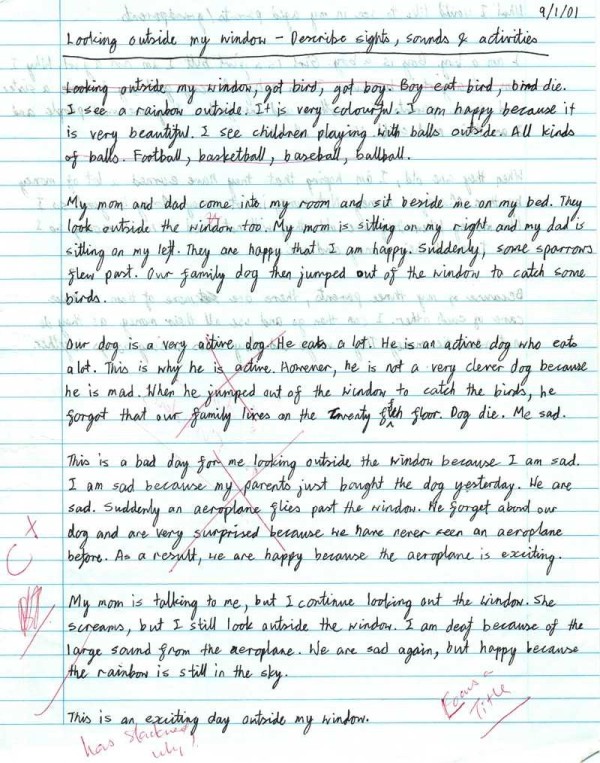 9/1/01
Looking outside my window - Describe sights, sounds & activities
Looking outside my window, got bird, got boy. Boy eat bird, bird die.
I see a rainbow outside. It is very colourful. I am happy because it
is very beautiful. I see children playing with balls outside. All kinds
of balls. Football, basketball, baseball, ballball.
My mom and dad come into my room and sit beside me on my bed. They
look outside the window too. My mom is sitting on my right and my dad is
sitting on my left. They are happy that I am happy. Suddenly, some sparrows
flew past. Our family dog then jumped out of the window to catch some
birds.
Our dog is a very active dog. He eats a lot. He is an active dog who eats
a lot. This is why he is active. However, he is not a very clever dog because
he is mad. When he jumped out of the window to catch the birds, he
forgot that our family lives on the Twenty floor. Dog die. Me sad.
This is a bad day for me looking outside the window because I am sad.
I am sad because my parents just bought the dog yesterday. We are
sad. Suddenly an aeroplane flies past the window. We forget about our
dog and are very surprised because we have never seen an aeroplane
before. As a result, we are happy because the aeroplane is exciting.
C+
My mom is talking to me, but I continue looking out the window. She
screams, but I still look outside the window. I am deaf because of the
large sound from the aeroplane. We are sad again, but happy because
the rainbow is still in the sky.
Focus on
Title
This is an exciting day outside my window.
has
why!